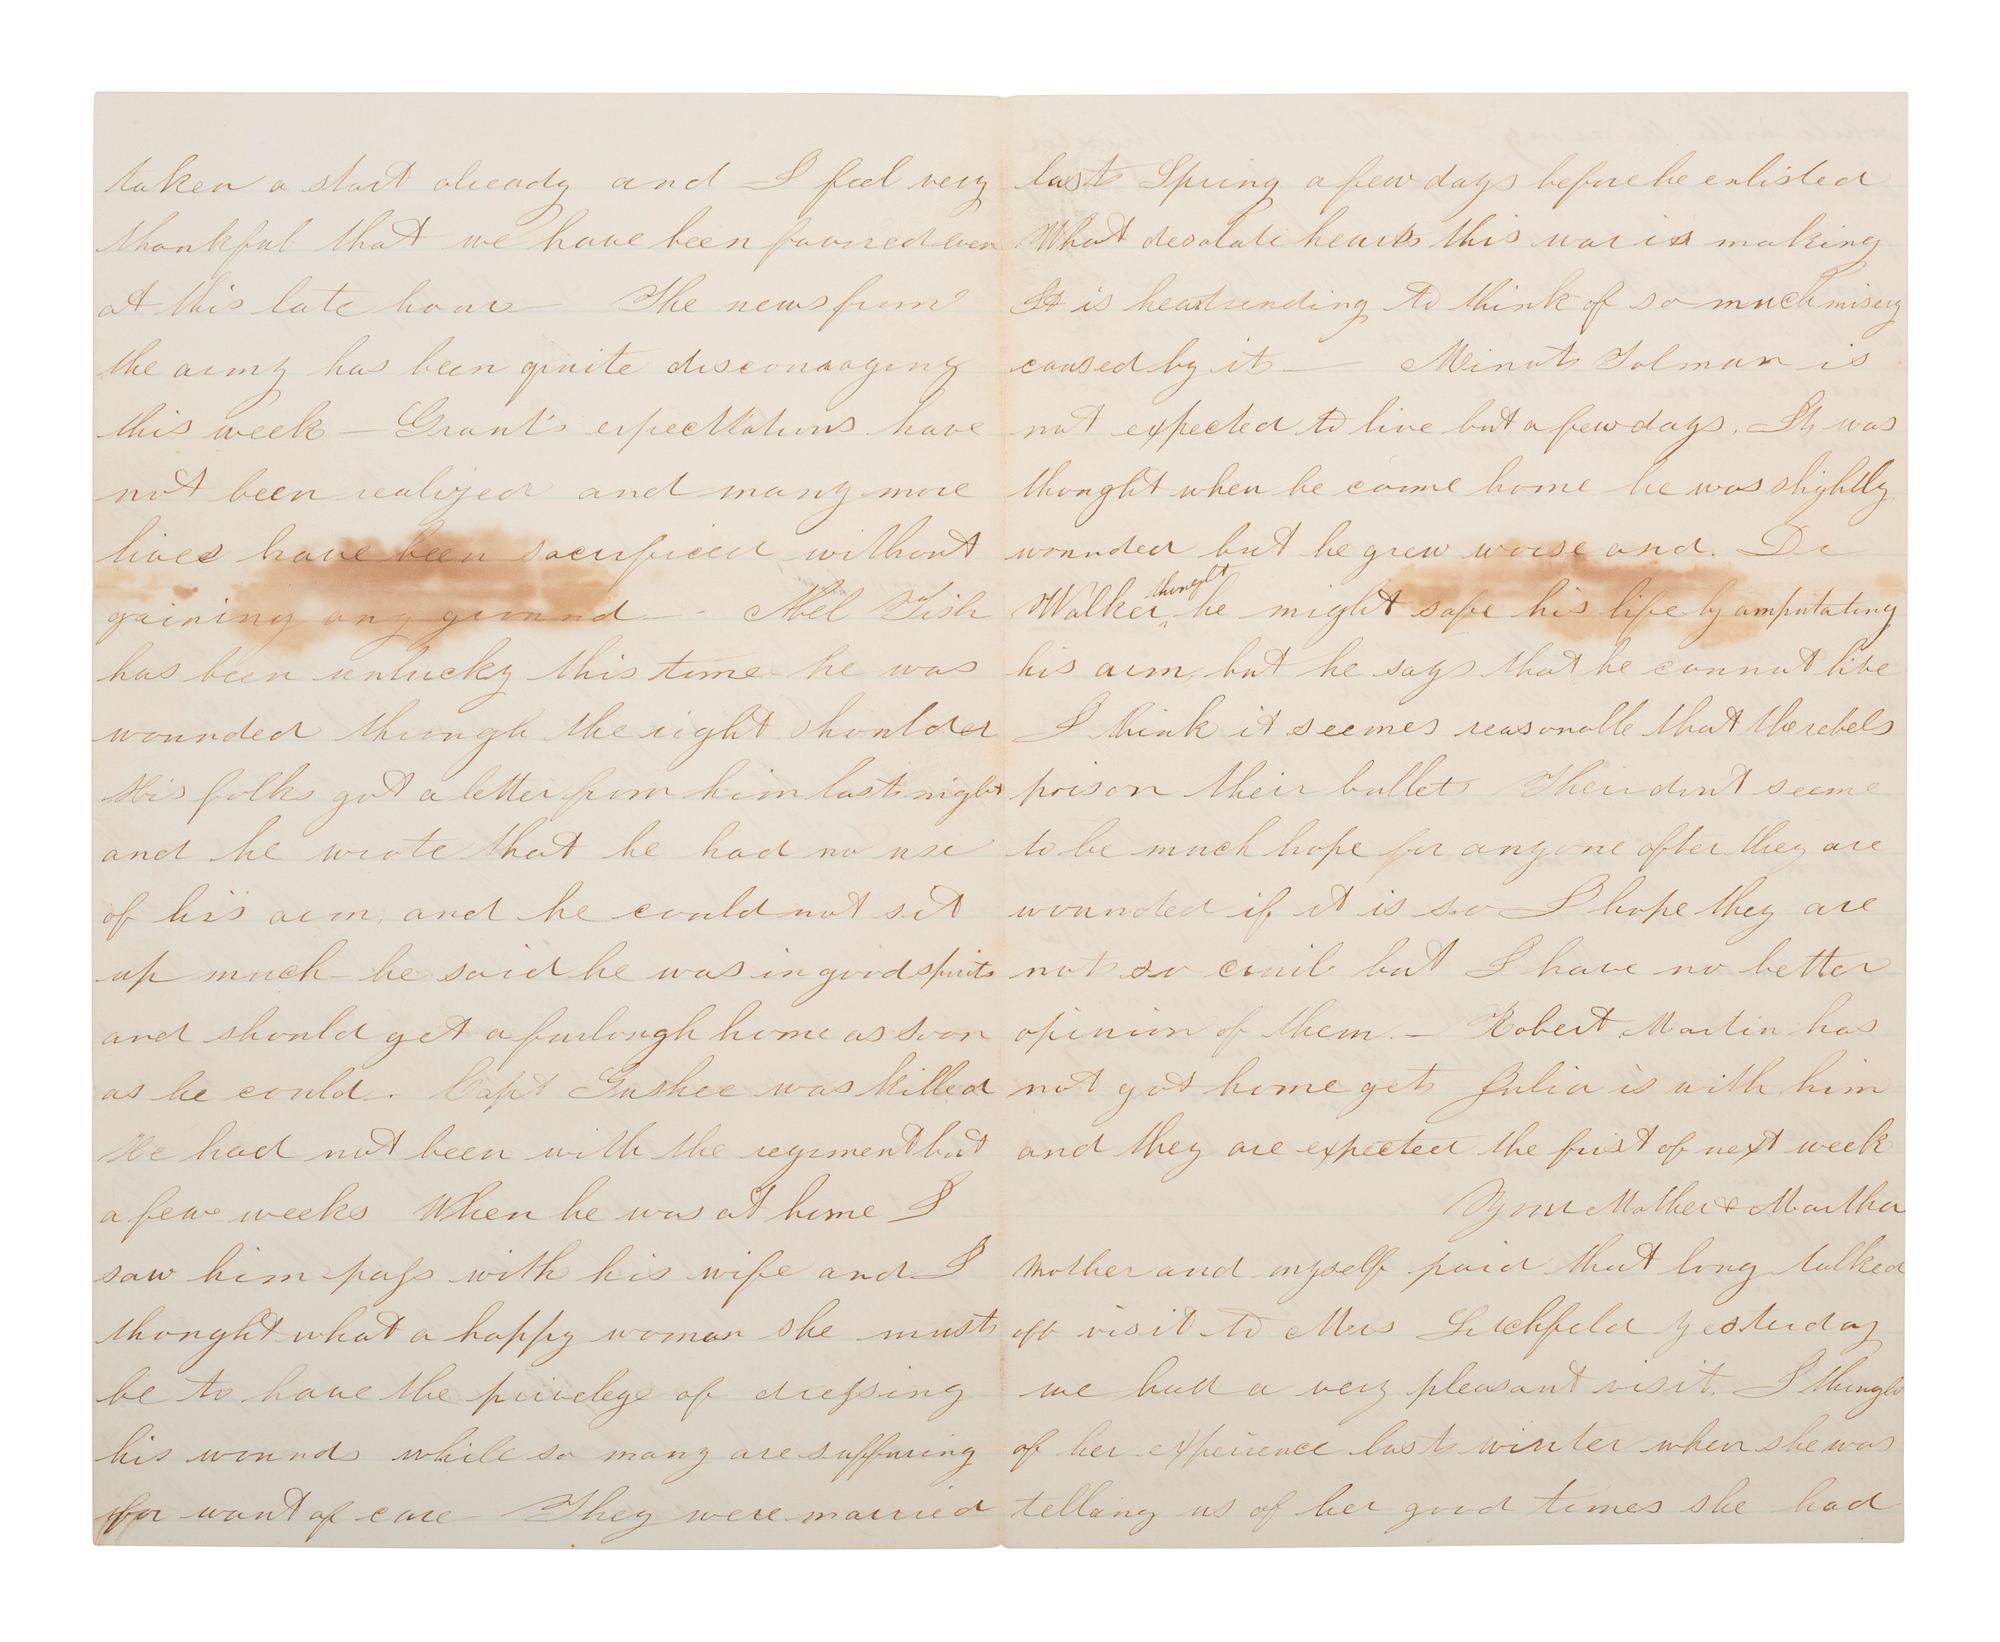 taken a start already and I feel very
thankful that we have been favored even
at this late hour — The news from
the army has been quite discouraging
this week — Grant's expectations have
not been realized and many more
lives have been sacrificed without
gaining any ground — Mel Tish
has been unlucky this time he was
wounded through the right shoulder
His folks got a letter from him last night
and he wrote that he had no use
of his arm, and he could not sit
up much — he said he was in good spirits
and should get a furlough home as soon
as he could. Capt Gushee was killed
He had not been with the regiment but
a few weeks When he was at home I
saw him pass with his wife and I
thought what a happy woman she must
be to have the privelege of dressing
his wounds while so many are suffuring
for want of care — They were married
last Spring a few days before he enlisted
What desolate hearts this war is making
It is heartrending to think of so much misery
caused by it — Minot Tolman is
not expected to live but a few days. It was
thought when he came home he was slightly
wounded but he grew worse and. Dr
Walker thought he might safe his life by amputating
his arm, but he says that he cannot live
I think it seemes reasonable that the rebels
poison their bullets Their dont seeme
to be much hope for anyone after they are
wounded if it is so I hope they are
not so cruil but I have no better
opinion of them. — Robert Martin has
not got home yet Julia is with him
and they are expected the first of next week
Your Mother & Martha
Mother and myself paid that long talked
off visit to Mrs Litchfeld yesterday
we had a very pleasant visit. I thought
of her experience last winter when she was
telling us of her good times she had